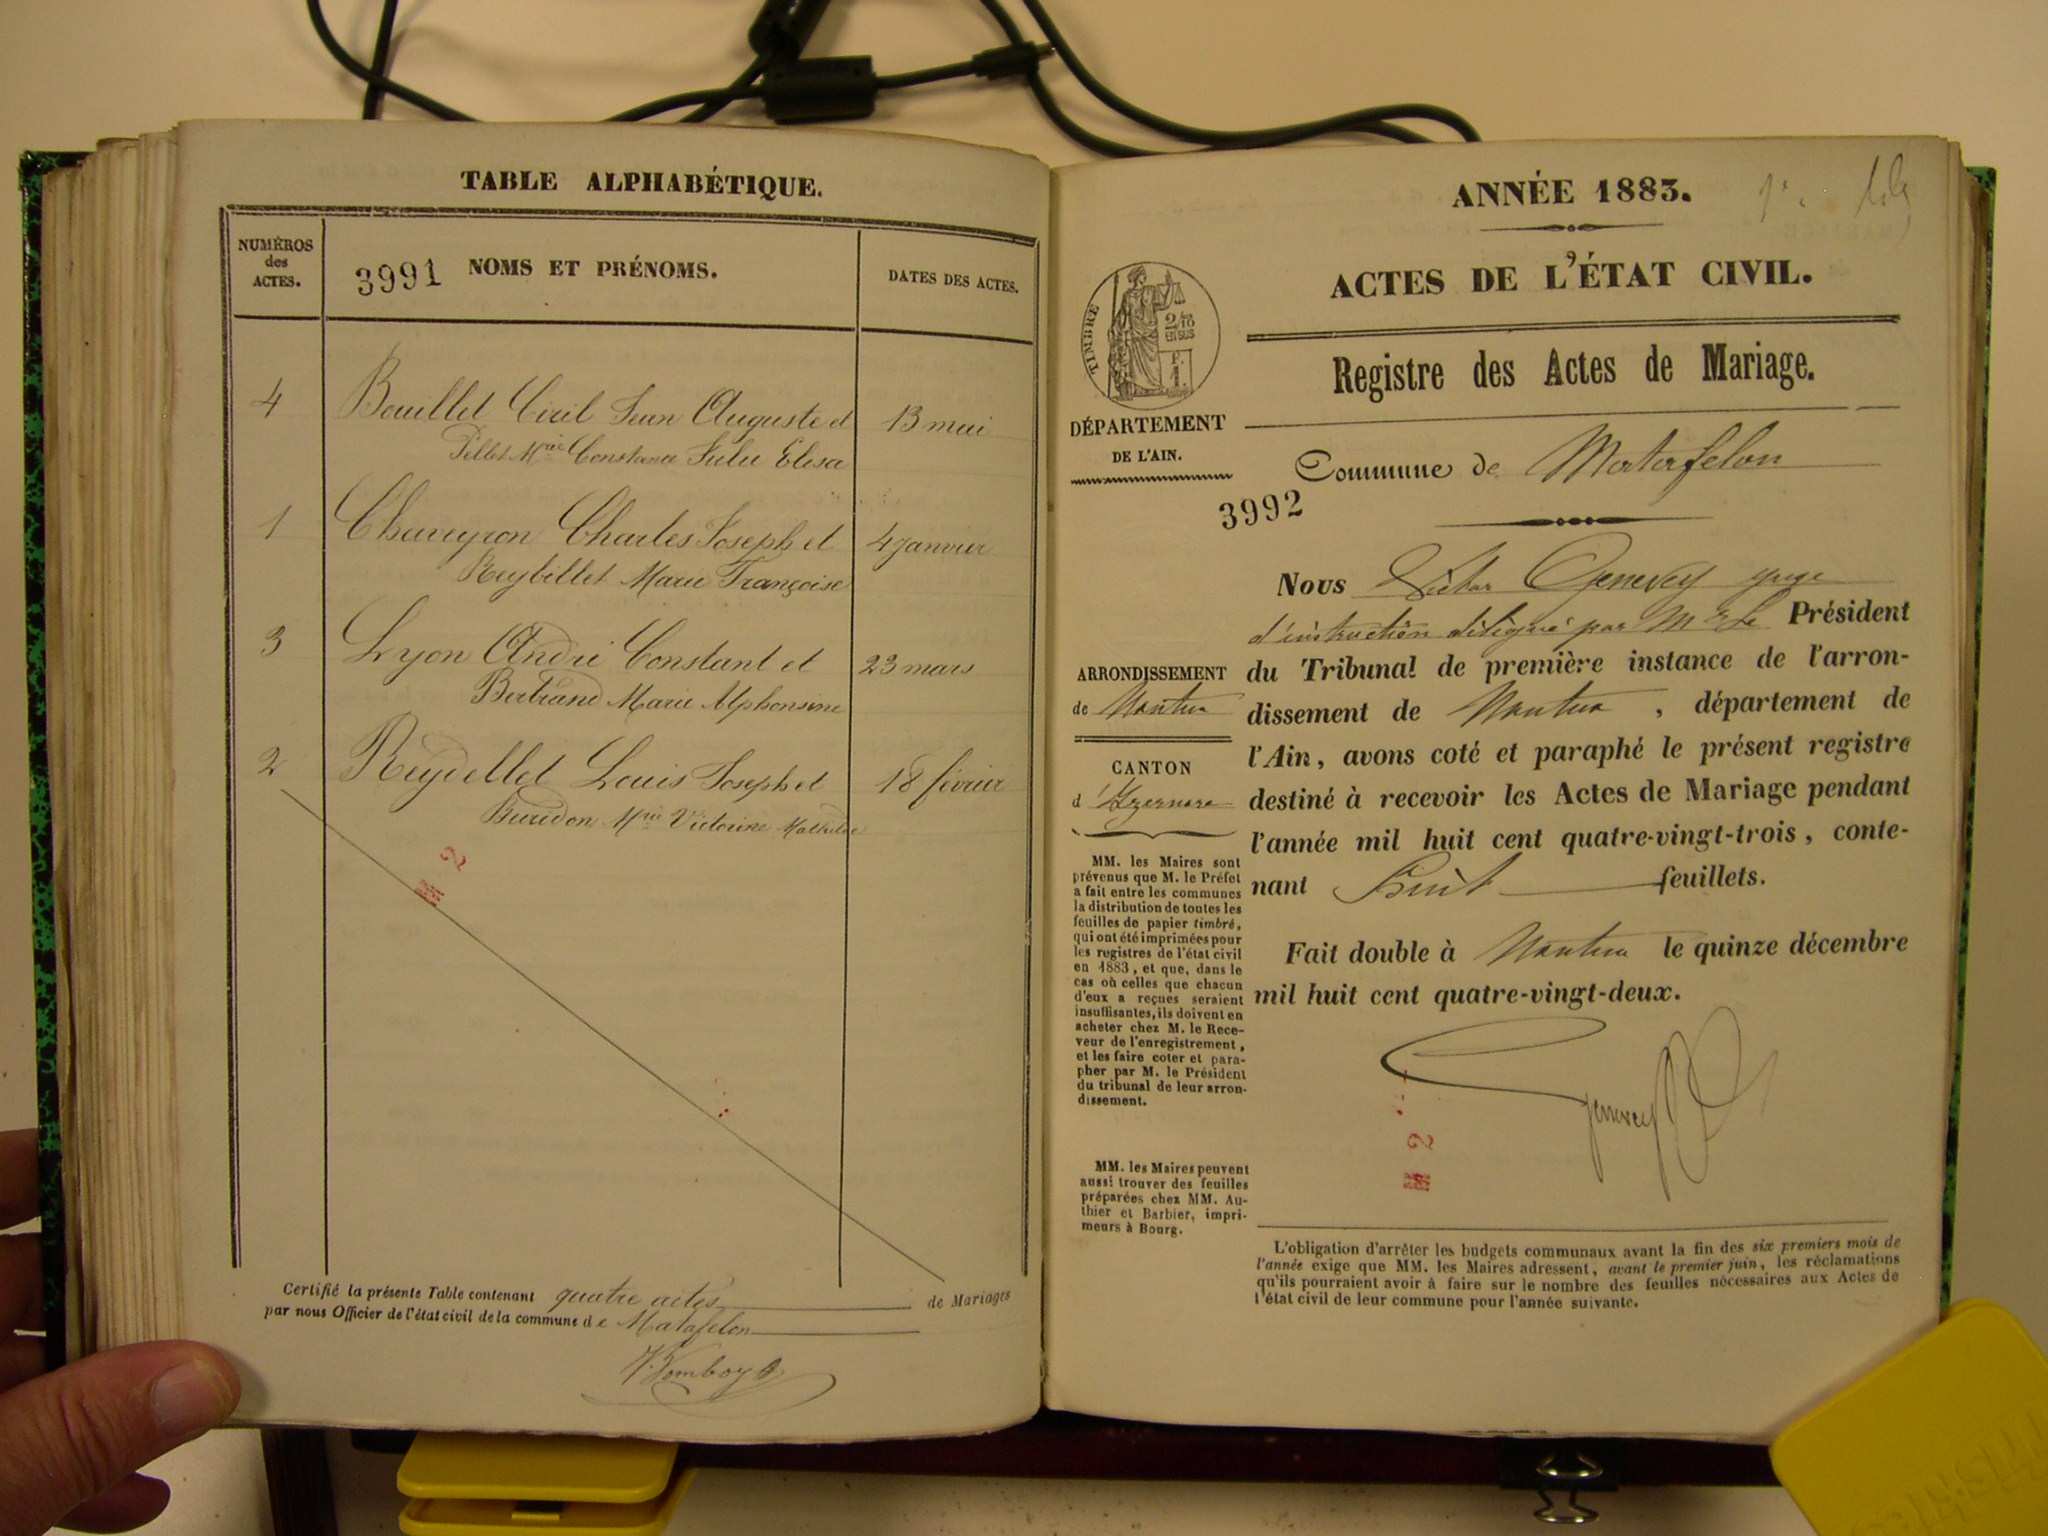 TABLE ALPHABÉTIQUE.
NUMÉROS
des
ACTES.
3991 NOMS ET PRÉNOMS.
DATES DES ACTES.
4 Bouillet Ciril Jean Auguste et 13 mai
Pellet Mie Constance Julie Elisa
1 Chaveyron Charles Joseph et 4 janvier
Reybillet Marie Françoise
3 Lyon André Constant et 23 mars
Bertrand Marie Alphonsine
2 Reydellet Louis Joseph et 18 février
Buredon Mie Victorine Mathilde
M 2
Certifié la présente Table contenant quatre actes de Mariages
par nous Officier de l'état civil de la commune de Matafelon
ANNÉE 1883.
ACTES DE L'ÉTAT CIVIL.
TIMBRE
2/10
EN SUS
F.
1.
Registre des Actes de Mariage.
DÉPARTEMENT
DE L'AIN.
Commune de Matafelon
3992
Nous Victor Genevey juge
d'instruction délégué par Mr Le Président
du Tribunal de première instance de l'arron-
dissement de Nantua, département de
l'Ain, avons coté et paraphé le présent registre
destiné à recevoir les Actes de Mariage pendant
l'année mil huit cent quatre-vingt-trois, conte-
nant huit feuillets.
Fait double à Nantua le quinze décembre
mil huit cent quatre-vingt-deux.
Genevey
M 2
ARRONDISSEMENT
de Nantua
CANTON
d'Izernore
MM. les Maires sont
prévenus que M. le Préfet
a fait entre les communes
la distribution de toutes les
feuilles de papier timbré,
qui ont été imprimées pour
les registres de l'état civil
en 1883, et que, dans le
cas où celles que chacun
d'eux a reçues seraient
insuffisantes, ils doivent en
acheter chez M. le Rece-
veur de l'enregistrement,
et les faire coter et para-
pher par M. le Président
du tribunal de leur arron-
dissement.
MM. les Maires peuvent
aussi trouver des feuilles
préparées chez MM. Au-
thier et Barbier, impri-
meurs à Bourg.
L'obligation d'arrêter les budgets communaux avant la fin des six premiers mois de
l'année exige que MM. les Maires adressent, avant le premier juin, les réclamations
qu'ils pourraient avoir à faire sur le nombre des feuilles nécessaires aux Actes de
l'état civil de leur commune pour l'année suivante.